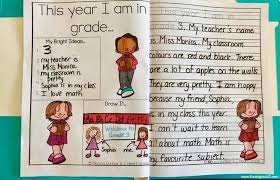 This year I am in
grade...
My Bright Ideas...
3
my teacher is
Miss Monica
my classroom is
pretty
Sophia is in my class
I love math
Draw It...
Welcome to
Grade 3
Sophia
me
3. My teacher's name
is Miss Monica. My classroom
colours are red and black. There
are a lot of apples on the walls
They are very pretty. I am happy
because my friend, Sophia
is in my class
I can't wait to learn
all about math. Math is
my favourite subject.